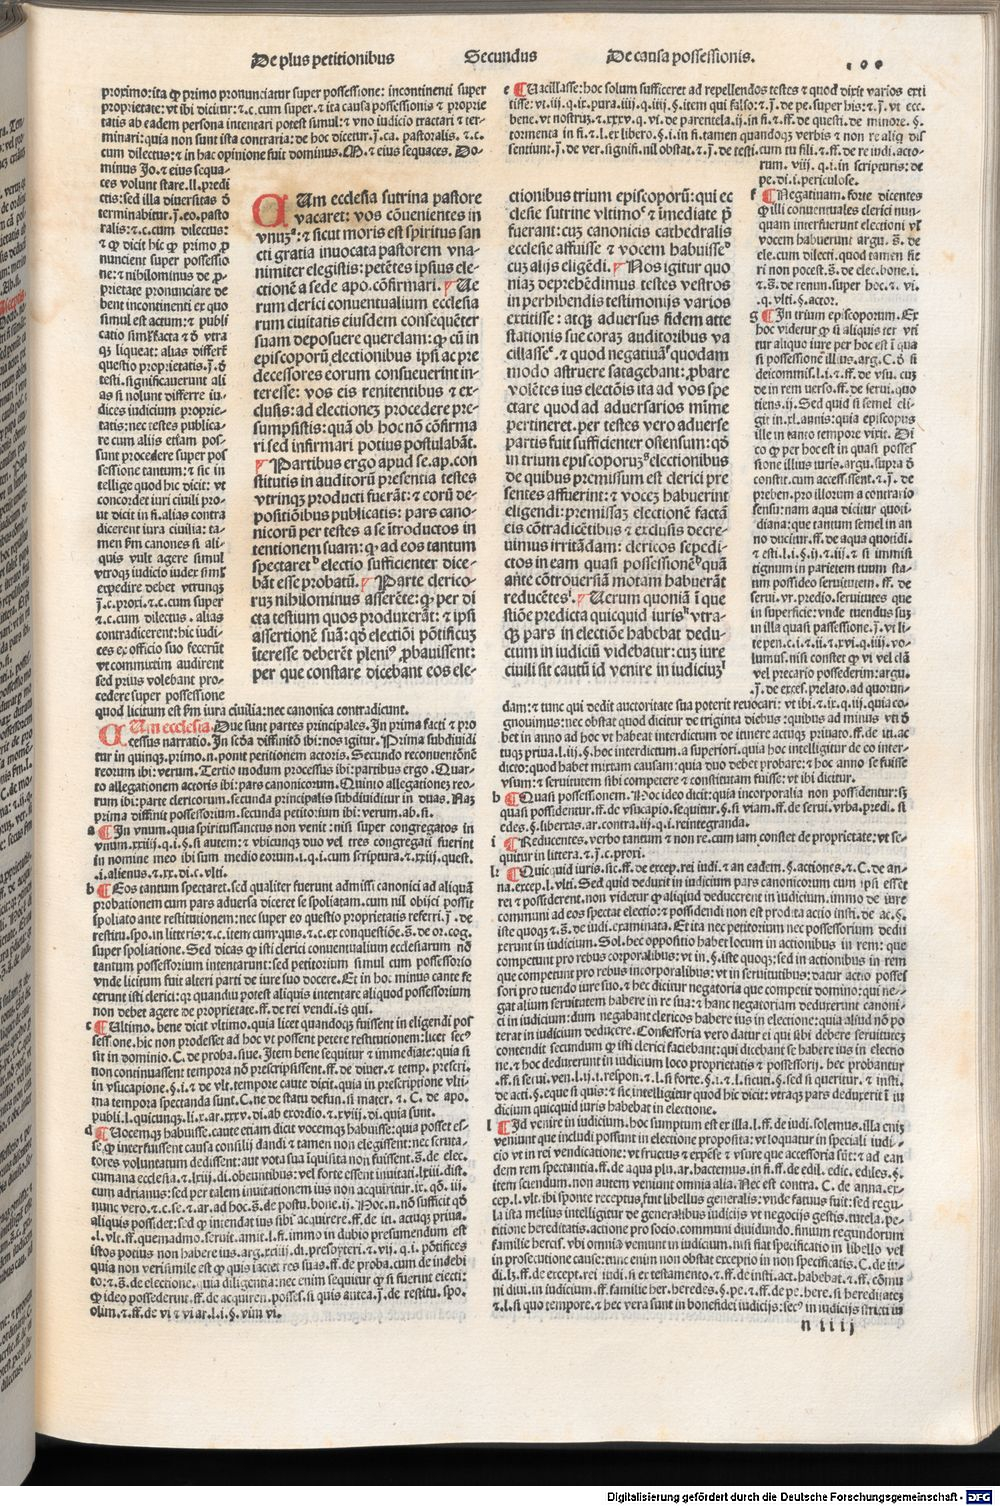 De plus petitionibus
Secundus
De causa possessionis.
.100
proximo: ita ꝙ primo pronunciatur super possessione: incontinenti super
proprietate: vt ibi dicitur: ⁊.c. cum super. ⁊ ita causa possessionis ⁊ proprie
tatis ab eadem persona intentari potest simul: ⁊ vno iudicio tractari ⁊ ter-
minari: quia non sunt ista contraria: de hoc dicetur.j.ca. pastoralis. ⁊.c.
cum dilectus: ⁊ in hac opinione fuit dominus.M. ⁊ eius sequaces. Do-
minus Jo. ⁊ eius sequa-
ces volunt stare.ll. predi
ctis: sed illa diuersitas
terminabitur.j.eo. pasto
ralis: ⁊.c. cum dilectus:
nuncient super possessio
ne: ⁊ nihilominus de
prietate pronunciare de
bent incontinenti ex quo
simul est actum: ⁊ publi
questio proprietatis.
testi. significauerunt ali
as si nolunt differre iu-
dices iudicium proprie-
tatis: nec testes publica-
re cum aliis etiam pos-
sunt procedere super pos
sessione tantum: ⁊ sic in
tellige quod hic dicit: vt
concordet iuri ciuili pro-
ut dicit in fi. alias contra
dicerent iura ciuilia: ta-
men canones si ali-
quis vult agere simul
vtroqꝫ iudicio iudex
expedire debet vtrunqꝫ
j.c. proxi. ⁊.c. cum super
⁊.c. cum dilectus. alias
contradicerent: hic iudi-
ces ex officio suo fecerūt
vt commixtim audirent
sed prius volebant pro-
cedere super possessione
quod licitum est iura ciuilia: nec canonica contradicunt.
CUm ecclesia sutrina pastore
vacaret: vos cōuenientes in
vnuꝫᵃ: ⁊ sicut moris est spiritus san
cti gratia inuocata pastorem vna-
nimiter elegistis: petētes ipsius ele-
ctionē a sede apo. cōfirmari. Ue
rum clerici conuentualium ecclesia
rum ciuitatis eiusdem consequēter
suam deposuere querelam: ꝙ cū in
episcoporū electionibus ipsi ac pre
decessores eorum consueuerint in-
teresse: vos eis renitentibus ⁊ ex-
clusis: ad electioneꝫ procedere pre-
sumpsistis: quā ob hoc nō cōfirma
ri. sed infirmari potius postulabāt.
Partibus ergo apud se. ap. con
stitutis in auditorū presentia testes
vtrinqꝫ producti fuerāt: ⁊ eorū de-
positiōibus publicatis: pars cano-
nicorū per testes a se ītroductos in
tentionem suam: ꝙ ad eos tantum
spectaretᵇ electio sufficienter dice-
bāt esse probatū. Parte clerico-
ruꝫ nihilominus asserēte: ꝙ per di
cta testium quos produxerāt: ⁊ ipsi
assertionē suā: electiōi pōtificuꝫ
īteresse deberēt ꝓbauissent:
per que constare dicebant eos ele-
ctionibus trium episcoporū: qui ec
clesie sutrine vltimoᶜ ⁊ imediate
fuerant: cuꝫ canonicis cathedralis
ecclesie affuisse ⁊ vocem habuisseᵈ
cuꝫ alijs eligēdi. Nos igitur quo
niaꝫ deprehēdimus testes vestros
in perhibendis testimonijs varios
extitisse: atqꝫ aduersus fidem atte
stationis sue coraꝫ auditoribus va
cillasseᵉ. ⁊ quod negatiuāᶠ quodam
modo astruere satagebant: ꝓbare
volētes ius electōis ita ad vos spe
ctare quod ad aduersarios mīme
pertineret. per testes vero aduerse
partis fuit sufficienter ostensum: qō
in trium episcoporuꝫᵍ electionibus
de quibus premissum est clerici pre
sentes affuerint: ⁊ voceꝫ habuerint
eligendi: premissaꝫ electionē factā
eis cōtradicētibus ⁊ exclusis decre-
uimus irritādam: clericos sepedi-
ctos in eam quasi possessionēʰ quā
ante cōtrouersiam motam habuerāt
reducētesⁱ. Uerum quoniā ī que
stiōe predicta quicquid iurisᵏ vtra-
qꝫ pars in electiōe habebat dedu-
ctum in iudiciū videbatur: cuꝫ iure
ciuili sit cautū id venire in iudiciuꝫˡ
e Uacillasse: hoc solum sufficeret ad repellendos testes ⁊ quod dixit varios exti
tisse: vt.iij.q.ix. pura.iiij.q.iiij.§. item qui falso: ⁊.j. de pe. super his: ⁊.j. vt ecc.
bene. vt nostruꝫ. ⁊.xxxv.q.vi. de parentela.ij. in fi. ⁊.ff. de questi. de minore.§.
tormenta in fi. ⁊.l. ex libero.§.i. in fi. tamen quandoqꝫ verbis ⁊ non re aliq̄ dis
sentiunt.j. de ver. signifi. nil obstat. ⁊.j. de testi. cum tu fili. ⁊.ff. de re iudi. acto-
rum. viii. q.i. in scripturis: de
pe. di.i. periculose.
f Negatiuam. forte dicentes
ꝙ illi conuentuales clerici nun-
quam interfuerint electioni vl
vocem habuerunt argu. s. de
ele. cum dilecti. quod tamen fie
ri non potest. s. de elec. bone.i.
⁊. s. de renun. super hoc. ⁊. vi.
.q. vlti.§. actor.
g In trium episcoporum. Ex
hoc videtur ꝙ si aliquis ter vti
tur aliquo iure per hoc est ī qua
si possessionē illius. arg. C.
deicommis.l.i. ⁊.ff. de vsu. cuꝫ
de in rem verso.ff. de serui. quo
tiens.ij. Sed quid si semel eli-
git in.xl. annis: quia episcopus
ille in tanto tempore vixit. Di
co ꝙ per hoc est in quasi posses
sione illius iuris. argu. supra
constit. cum accessissent. ⁊.j. de
preben. pro illorum a contrario
sensu: nam aqua dicitur quoti-
diana: que tantum semel in an
no ducitur.ff. de aqua quotidi.
⁊ esti.l.i.§.ij. ⁊.iij. ⁊ si immisi
tignum in parietem tuum sta-
tim possideo seruitutem. ff. de
serui. vr. predio. seruitutes que
in superficie: vnde tuendus suꝫ
in illa quasi possessione.j. vt li-
te pen.c.i. ⁊.ii. ⁊.xvi.q.iiij. vo-
lumus. nisi constet ꝙ vi vel clā
vel precario possederim: argu.
.j. de exces. prelato. ad quorun-
dam: ⁊ tunc qui dedit auctoritate sua poterit reuocari: vt ibi. ⁊.ix.q.iij. quia co-
gnouimus: nec obstat quod dicitur de triginta diebus: quibus ad minus vti
bet in anno ad hoc vt habeat interdictum de itinere actuqꝫ priuato.ff. de iti. ac
tuqꝫ priua.l.iij.§. hoc interdictum. a superiori. quia hoc intelligitur de eo inter-
dicto: quod habet mixtam causam: quia duo debet probare: ⁊ hoc anno se fuisse
vsum: ⁊ seruitutem sibi competere ⁊ constitutam fuisse: vt ibi dicitur.
h Quasi possessionem. Hoc ideo dicit: quia incorporalia non possidentur: sꝫ
quasi possidentur.ff. de vsucapio. sequitur.§. si viam.ff. de serui. vrba. predi. si
edes.§. libertas. ar. contra.iij.q.i. reintegranda.
i Reducentes. verbo tantum ⁊ non re. cum iam constet de proprietate: vt se-
quitur in littera. ⁊.j.c. proxi.
k Quicquid iuris. sic.ff. de excep. rei iudi. ⁊ an eadem.§. actiones. ⁊. C. de an-
na. excep.l. vlti. Sed quid deduxit in iudicium pars canonicorum cum ipsi essēt
rei ⁊ possiderent. non videtur ꝙ aliquid deducerent in iudicium. immo de iure
communi ad eos spectat electio: ⁊ possidendi non est prodita actio insti. de ac.§.
iste quoqꝫ ⁊. s. de iudi. examinata. Et ita nec petitorium nec possessorium dedu
xerunt in iudicium. Sol. hec oppositio habet locum in actionibus in rem: que
competunt pro rebus corporalibus: vt in.§. iste quoqꝫ: sed in actionibus in rem
que competunt pro rebus incorporalibus: vt in seruitutibus: datur actio posses
sori pro tuendo iure suo. ⁊ hec dicitur negatoria que competit domino: qui ne-
gat alium seruitutem habere in re sua: ⁊ hanc negatoriam deduxerunt canoni-
ci in iudicium: dum negabant clericos habere ius in electione: quia aliud nō po
terat in iudicium deducere. Confessoria vero datur ei qui sibi debere seruituteꝫ
contendit secundum ꝙ isti clerici faciebant: qui dicebant se habere ius in electio
ne. ⁊ hoc deduxerunt in iudicium loco proprietatis ⁊ possessorij. hec probantur
.ff. si serui. ven.l.ij.i. respon. ⁊.l. si forte.§.i. ⁊.l. sicuti.§. sed si queritur. ⁊ insti.
de acti.§. eque si quis: ⁊ sic intelligitur quod hic dicit: vtraqꝫ pars deduxerit ī iu
dicium quicquid iuris habebat in electione.
l Id venire in iudicium. hoc sumptum est ex illa.l.ff. de iudi. solemus. illa eniꝫ
veniunt que includi possunt in electione proposita: vt loquatur in speciali iudi-
cio vt in rei vendicatione: vt fructus ⁊ expēse ⁊ vsure que accessoria sūt: ⁊ ad ean
dem rem spectantia.ff. de aqua plu. ar. hactenus. in fi.ff. de edil. edic. ediles.§.
item sciendum. non autem veniunt omnia alia. Nec est contra. C. de anna. ex-
cep.l. vlt. ibi sponte receptus fuit libellus generalis: vnde fatuus fuit: sed regu-
la ista melius intelligitur de generalibus iudicijs vt negocijs gestis. tutela. pe-
titione hereditatis. actione pro socio. communi diuidundo. finium regundorum
familie hercis. vbi omnia veniunt in iudicium. nisi fiat specificatio in libello vel
in prosecutione cause: tunc enim non obstat exceptio in non specificatis. C. de iu-
di.lꝫ.ff. de except. rei iudi. si ex testamento. ⁊.ff. de insti. act. habebat. ⁊.ff. cōmu
ni diui. in iudicium.ff. familie her. heredes.§. pe. ⁊.ff. de pe. here. si hereditateꝫ
⁊.l. si quo tempore. ⁊ hec vera sunt in bonefidei iudicijs: in iudicijs stricti iu
n iiij
CUm ecclesia. Due sunt partes principales. In prima facti ⁊ pro
cessus narratio. In scōa diffinitō ibi: nos igitur. Prima subdiuidi
tur in quinqꝫ. primo. n. ponit petitionem actoris. Secundo reconuentionē
reorum ibi: verum. Tertio modum processus ibi: partibus ergo. Quar-
to allegationem actoris ibi: pars canonicorum. Quinto allegationeꝫ reo-
rum ibi: parte clericorum. secunda principalis subdiuiditur in duas. Naꝫ
prima diffinit possessorium. secunda petitorium ibi: verum. ab. si.
a In vnum. quia spiritussanctus non venit: nisi super congregatos in
vnum.xxiij.q.i.§. si autem: ⁊ vbicunqꝫ duo vel tres congregati fuerint
in nomine meo ibi sum medio eorum.i.q.i. cum scriptura. ⁊.xxiij. quest.
.i. alienus. ⁊.xx. di.c. vlti.
b Eos tantum spectaret. sed qualiter fuerunt admissi canonici ad aliquā
probationem cum pars aduersa diceret se spoliatam. cum nil obijci possit
spoliato ante restitutionem: nec super eo questio proprietatis referri.j. de
restitu. spo. in litteris: ⁊.c. item cum quis. ⁊.c. ex conquestiōe. s. de or. cog.
super spoliatione. Sed dicas ꝙ isti clerici conuentualium ecclesiarum nō
tantum possessorium intentarunt: sed petitorium simul cum possessorio
vnde licitum fuit alteri parti de iure suo docere. Et in hoc minus caute fe
cerunt isti clerici: qꝛ quandiu potest aliquis intentare aliquod possessorium
non debet agere de proprietate.ff. de rei vendi. is qui.
c Ultimo. bene dicit vltimo. quia licet quandoqꝫ fuissent in eligendi pos
sessione. hic non prodesset ad hoc vt possent petere restitutionem: licet
sit in dominio. C. de proba. siue. Item bene sequitur ⁊ immediate: quia si
non continuassent tempora nō prescripsissent.ff. de diuer. ⁊ temp. prescri.
in vsucapione.§.i. ⁊ de vlt. tempore caute dicit. quia in prescriptione vlti-
ma tempora spectanda sunt. C. ne de statu defun. si mater. ⁊. C. de apo.
publi.l. quicunqꝫ.li.x. ar.xxxv. di. ab exordio. ⁊.xviij. di. quia sunt.
d Uocemqꝫ habuisse. caute etiam dicit vocemqꝫ habuisse: quia posset es-
se ꝙ interfuissent causa consilii dandi ⁊ tamen non elegissent: nec scruta-
tores voluntatum dedissent: aut vota sua iquisita non fuissent. s. de elec.
cumana ecclesia. ⁊.lxiij. di. obeuntibus: vel forte essent inuitati.lxiij. dist.
cum adrianus: sed per talem inuitationem ius non acquiritur.ix.qō.iij.
nunc vero. ⁊.c. se. ⁊ ar. ad hoc. s. de postu. bone.ij. Hoc. n. nō sufficit qō
aliquis possidet: sed ꝙ intendat ius sibi acquirere.ff. de iti. actuqꝫ priua.
.l. vlt.ff. quemadmo. seruit. amit.l.ff. immo in dubio presumendum est
istos potius non habere ius. arg.xciij. di. presbyteri. ⁊. vij. q.i. pōtifices
quia non verisimile est ꝙ quis iactet res suas.ff. de proba. cum de indebi
to: ⁊. s. de electione. quia diligentia: nec enim sequitur ꝙ si fuerint eiecti:
ꝙ ideo possederint.ff. de acquiren. posses. si quis antea.j. de restitu. spo.
olim. ⁊.ff. de vi ⁊ vi ar.l.i.§. vim vi.
Digitalisierung gefördert durch die Deutsche Forschungsgemeinschaft - DFG